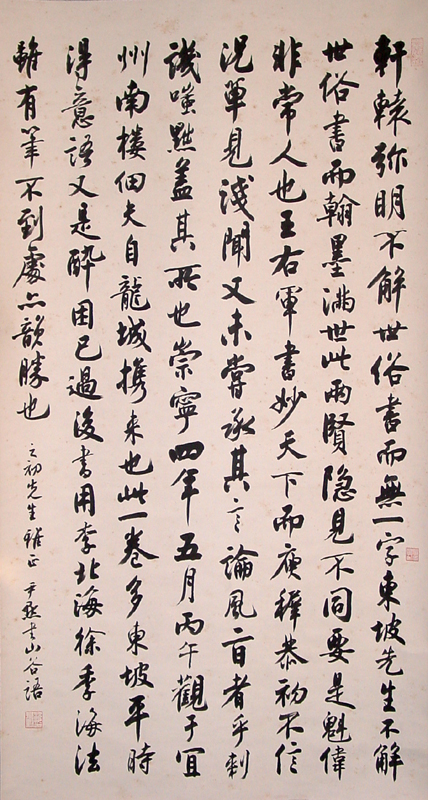 軒轅弥明不解世俗書而無一字東坡先生不解
世俗書而翰墨滿世此兩賢隐見不同要是魁偉
非常人也王右軍書妙天下而庾穉恭初不信
況單見淺聞又未嘗承其言論風旨者乎刺
譏嗤黙盖其所也崇寧四年五月丙午觀于宜
州南樓佃夫自龍城携来也此一卷多東坡平時
得意語又是醉困已過後書用李北海徐季海法
雖有筆不到處亦韻勝也
立初先生雅正 尹默書山谷語